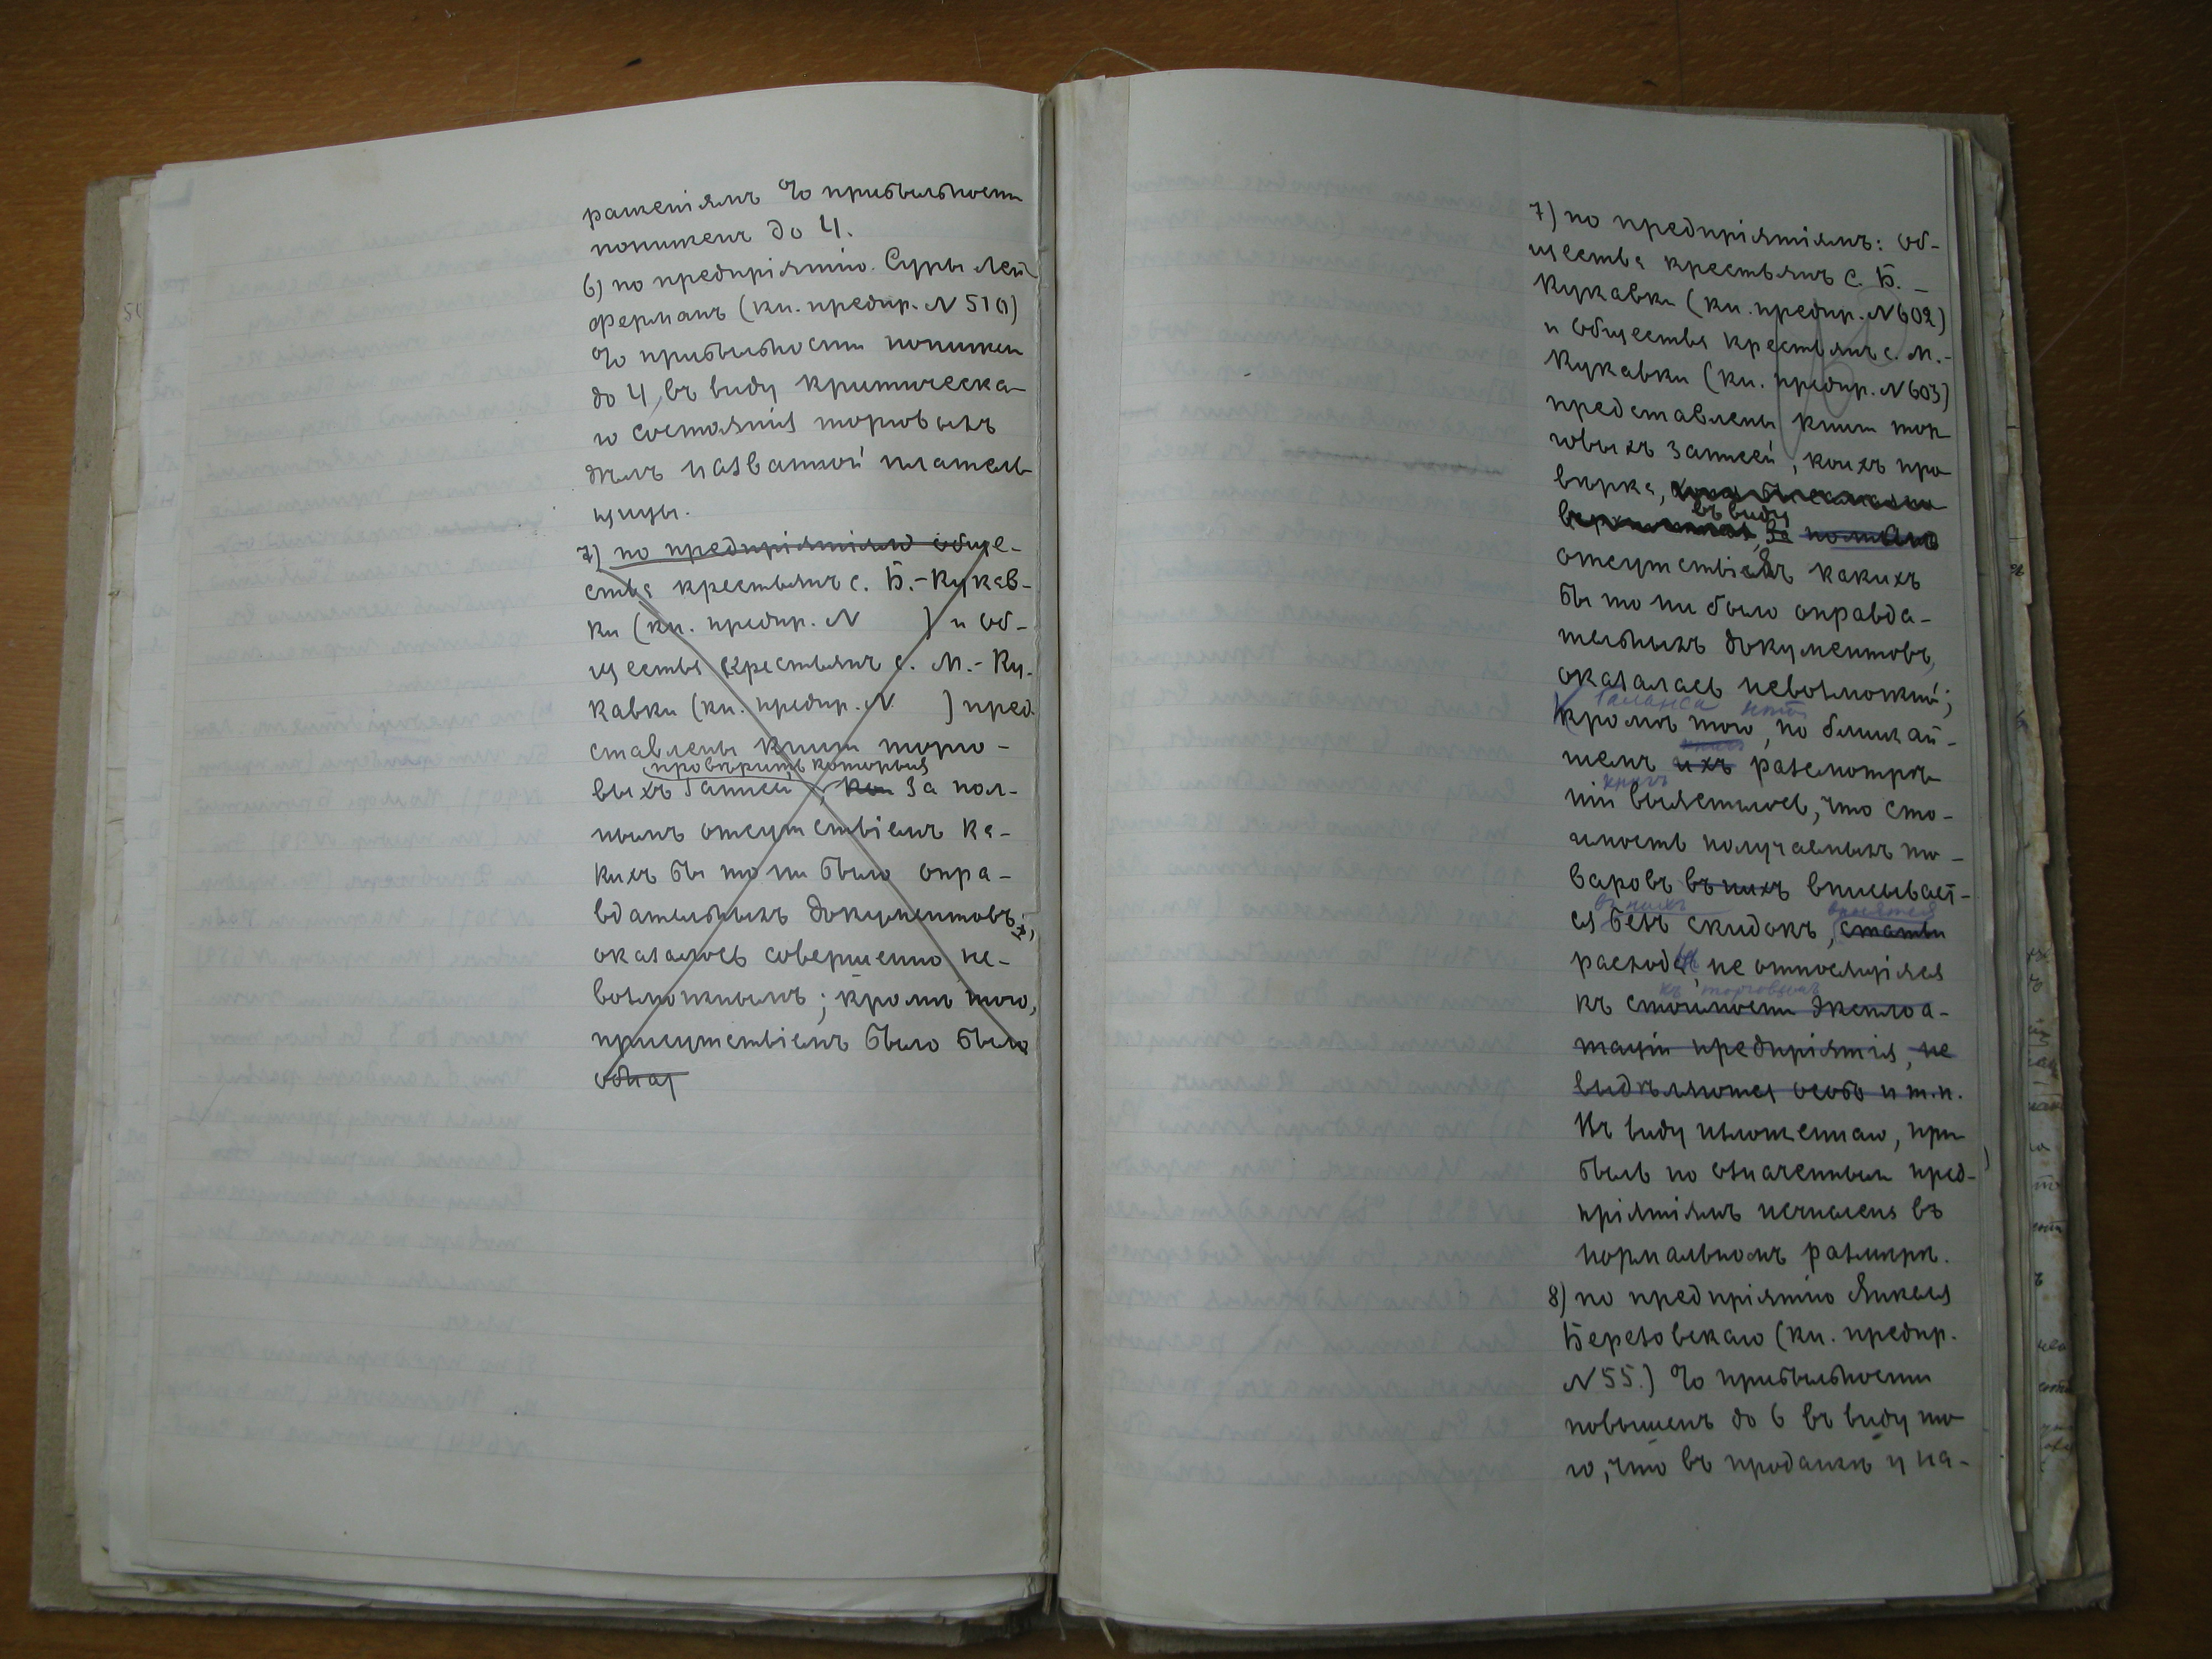 раженіямъ % прибыльности
пониженъ до 4.
6) по предпріятію Суры Лей-
ферманъ (кн. предпр. N 510)
% прибыльности понижен
до 4, въ виду критическа-
го состоянія торговыхъ
дѣлъ названной платель-
щицы.
7) по предпріятіямъ обще-
ства крестьянъ с. Б.-Кукав-
ки (кн. предпр. N ) и об-
щества крестьянъ с. М.-Ку-
кавки (кн. предпр. N ) пред-
ставлены книги торго-
провѣрить которыя
выхъ записей, за пол-
нымъ отсутствіемъ ка-
кихъ бы то ни было опра-
вдательныхъ документовъ,
оказалось совершенно не-
возможнымъ; кромѣ того,
присутствіемъ было было
обнар
7) по предпріятіямъ: об-
щества крестьянъ с. Б.-
Кукавки (кн. предпр. N 602)
и общества крестьянъ с. М.-
Кукавки (кн. предпр. N 603)
представлены книги тор-
говыхъ записей, коихъ про-
вѣрка,
въ виду
за полнаго
отсутствія какихъ
бы то ни было оправда-
тельныхъ документовъ,
оказалась невозможной;
баланса нѣтъ
кромѣ того, по ближай-
шемъ ихъ разсмотрѣ-
книгъ
ніи выяснилось, что сто-
имость получаемыхъ то-
варовъ въ нихъ вписывает-
въ нихъ вносятся
ся безъ скидокъ, статьи
расходы не относящіяся
къ торговымъ
къ стоимости эксплоа-
таціи предпріятія, не
выдѣляются особо и т.п.
Въ виду изложеннаго, при-
быль по означеннымъ пред-
пріятіямъ исчислена въ
нормальномъ размѣрѣ.
8) по предпріятію Янкеля
Березовскаго (кн. предпр.
N 55.) % прибыльности
повышенъ до 6 въ виду то-
го, что въ продажѣ у на-